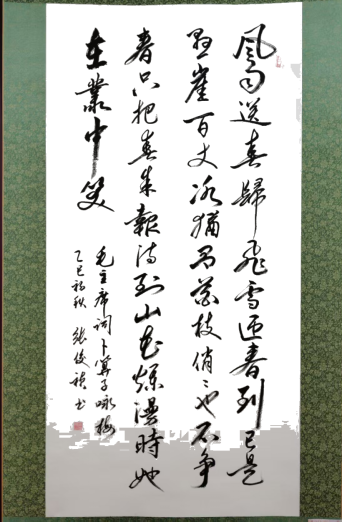 風雨送春歸飛雪迎春到已是
悬崖百丈冰猶有花枝俏〻也不争
春只把春来報待到山花爛漫時她
在叢中笑
毛主席词卜算子咏梅
乙巳初秋 張俊书